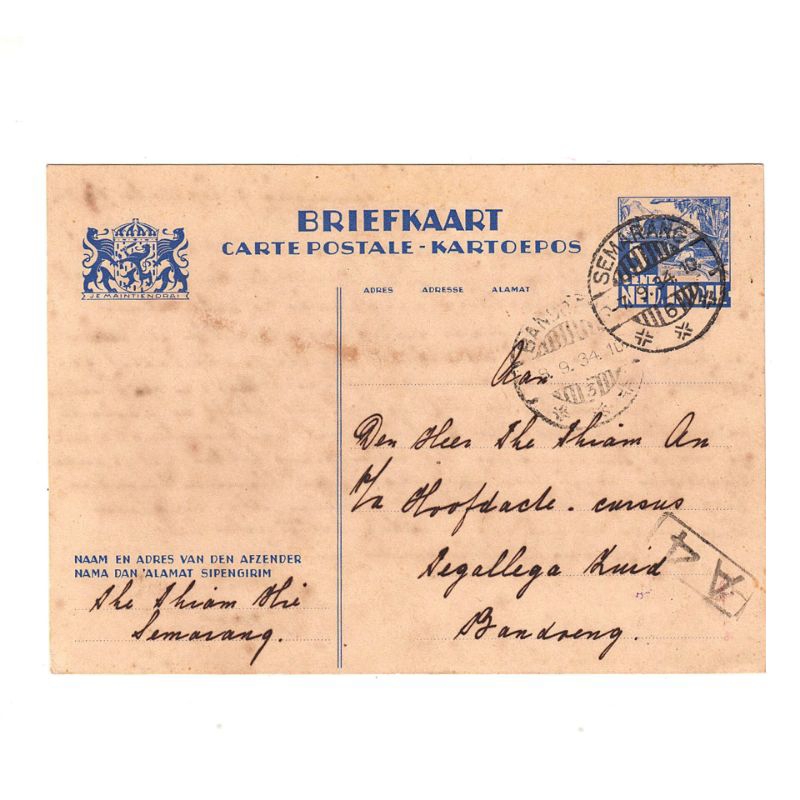 BRIEFKAART
CARTE POSTALE - KARTOEPOS
JE MAINTIENDRAI
ADRES ADRESSE ALAMAT
SEMARANG
9.34.
6
9.34.10
3
Aan
Den Heer The Thiam An
p/a Hoofdacte-cursus
Tegallega Zuid
Bandoeng.
A 4
NAAM EN ADRES VAN DEN AFZENDER
NAMA DAN 'ALAMAT SIPENGIRIM
The Thiam Hie
Semarang.